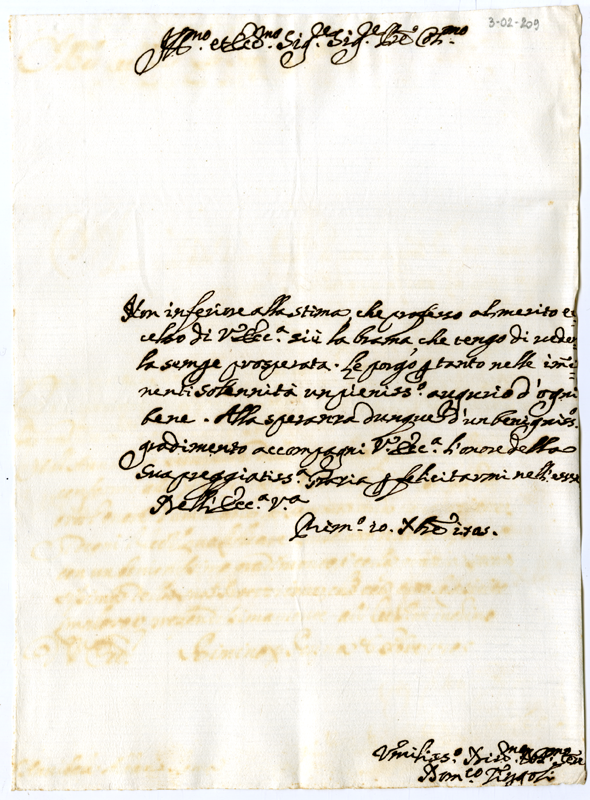 3-02-209
Ill.mo et Ecc.mo Sig.e Sig.e Pñe Col.mo
Non inferiore alla stima, che professo al merito ec
celso di V. Ecc.a si è la brama che tengo di veder
la sempe prosperata. Le porgo p tanto nelle im̃i
nenti solennità un pieniss.o augurio d'ogni
bene. Alla speranza dunque d'un benigniss.o
gradimento accompagni V. Ecc.a l'onore della
sua preggiatiss.a grazia p felicitarmi nell'esse
Dell'Ecc.a V.a
10. Xbre
Vmiliss.o
Dom.co